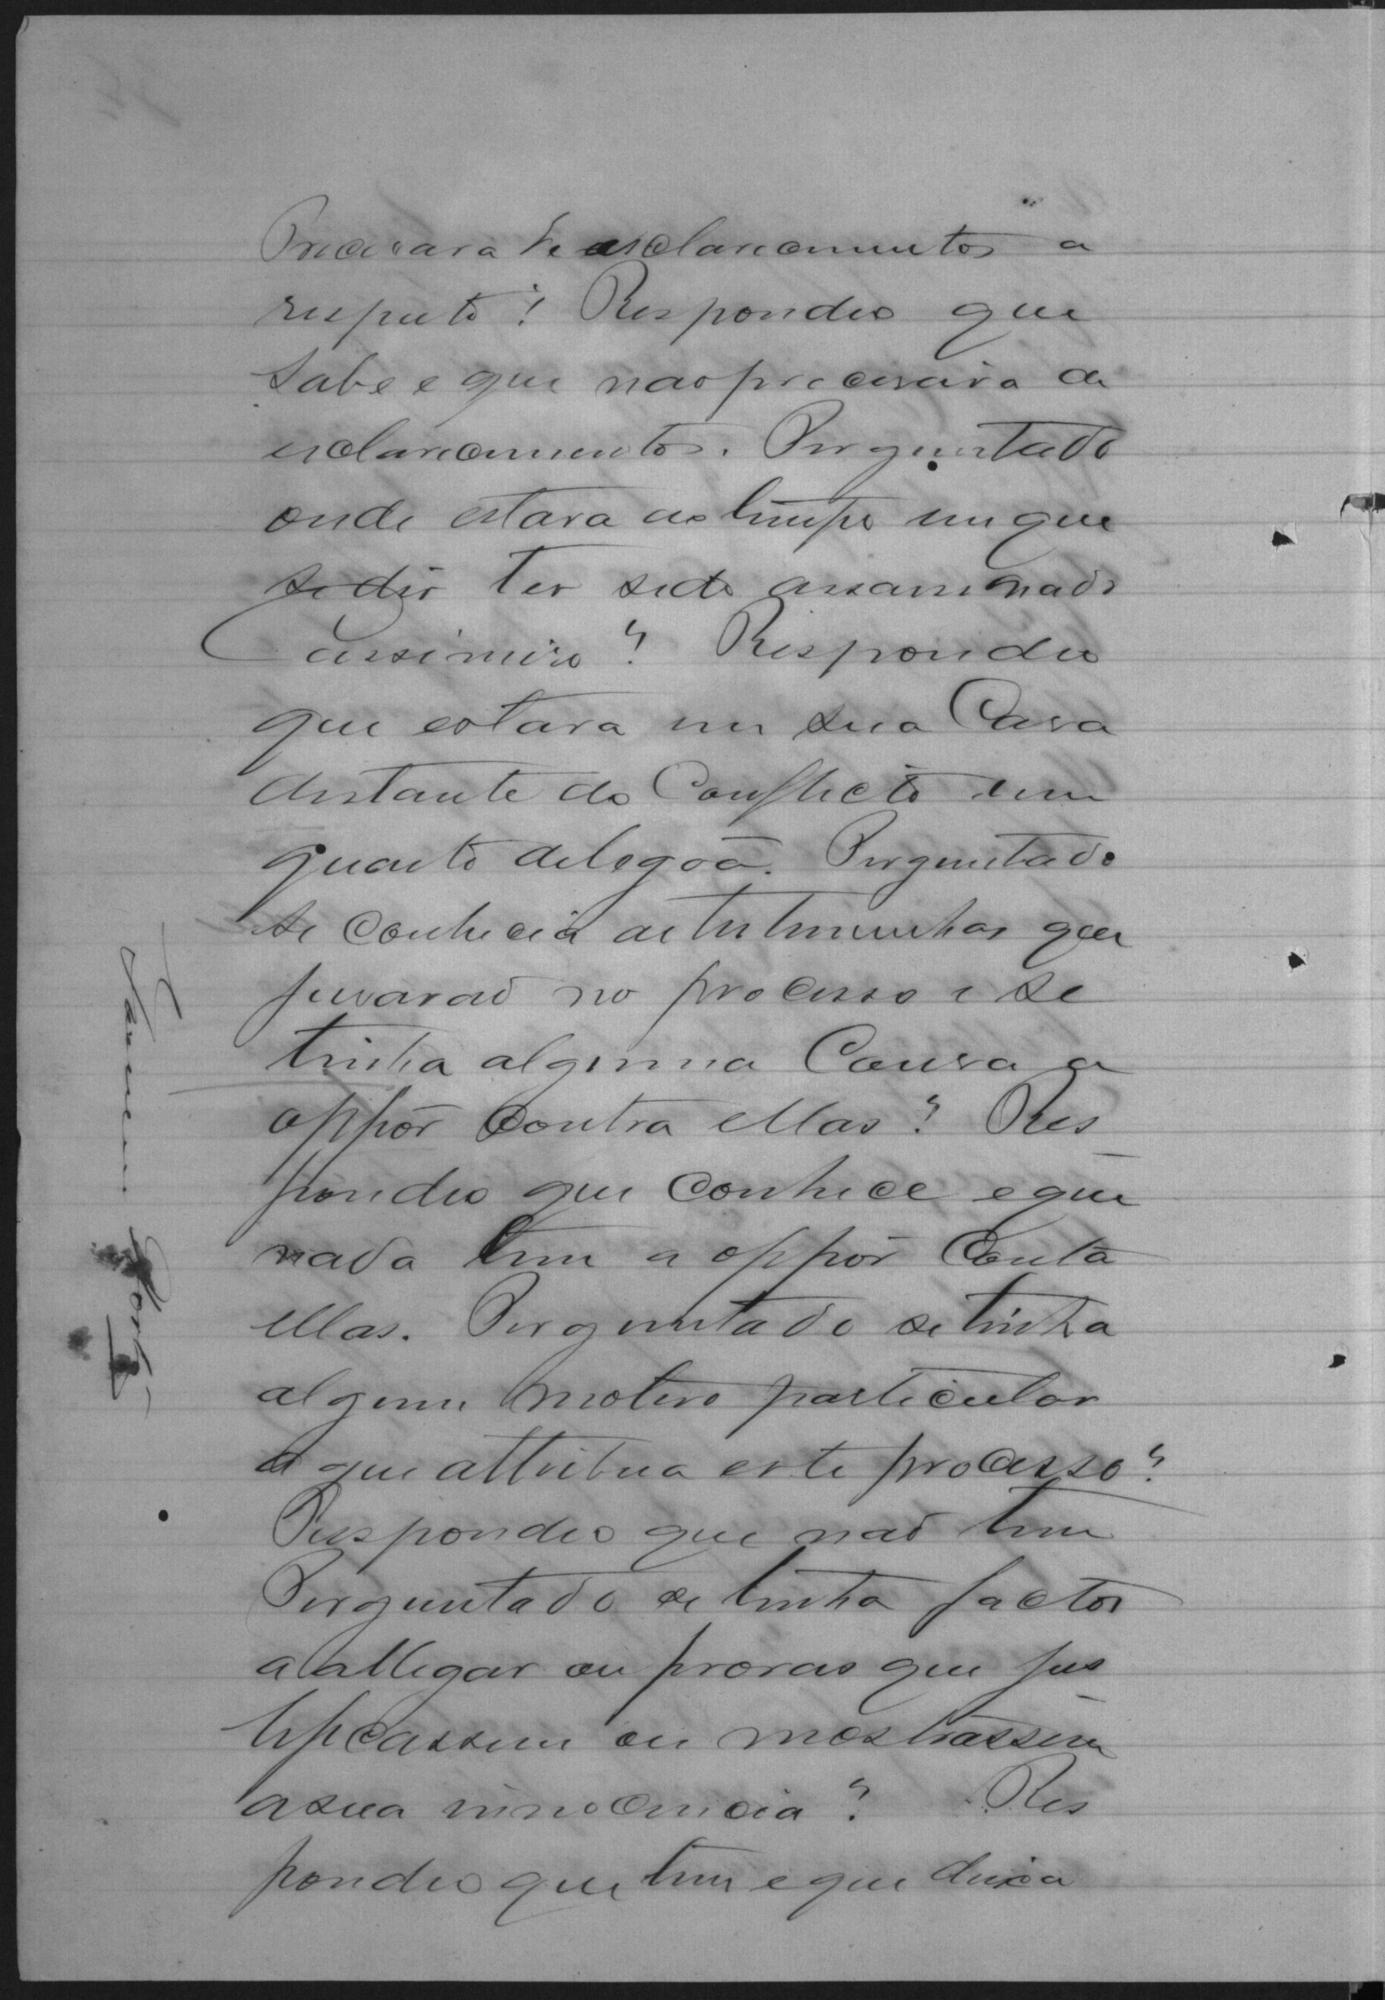 Precisava de esclarecimentos a
respeito? Respondeo que
sabe e que não precisava de
esclarecimentos. Perguntado
onde estava ao tempo em que
se diz ter sido assassinado
Cassimiro? Respondeo
que estava em sua Casa
distante do Conflicto um
quarto de legoa. Perguntado
se conhecia as testemunhas que
juraraõ no processo e se
tinha alguma Cousa a
oppôr contra ellas? Res
pondeo que conhece e que
nada tem a oppôr Conta
ellas. Perguntado se tinha
algum motivo particular
a que attribua este processo?
Respondeo que naõ tem
Perguntado se tinha factos
a allegar ou provas que jus
tificassem ou mostrassem
a sua innocencia? Res
pondeo que tem e que deixa